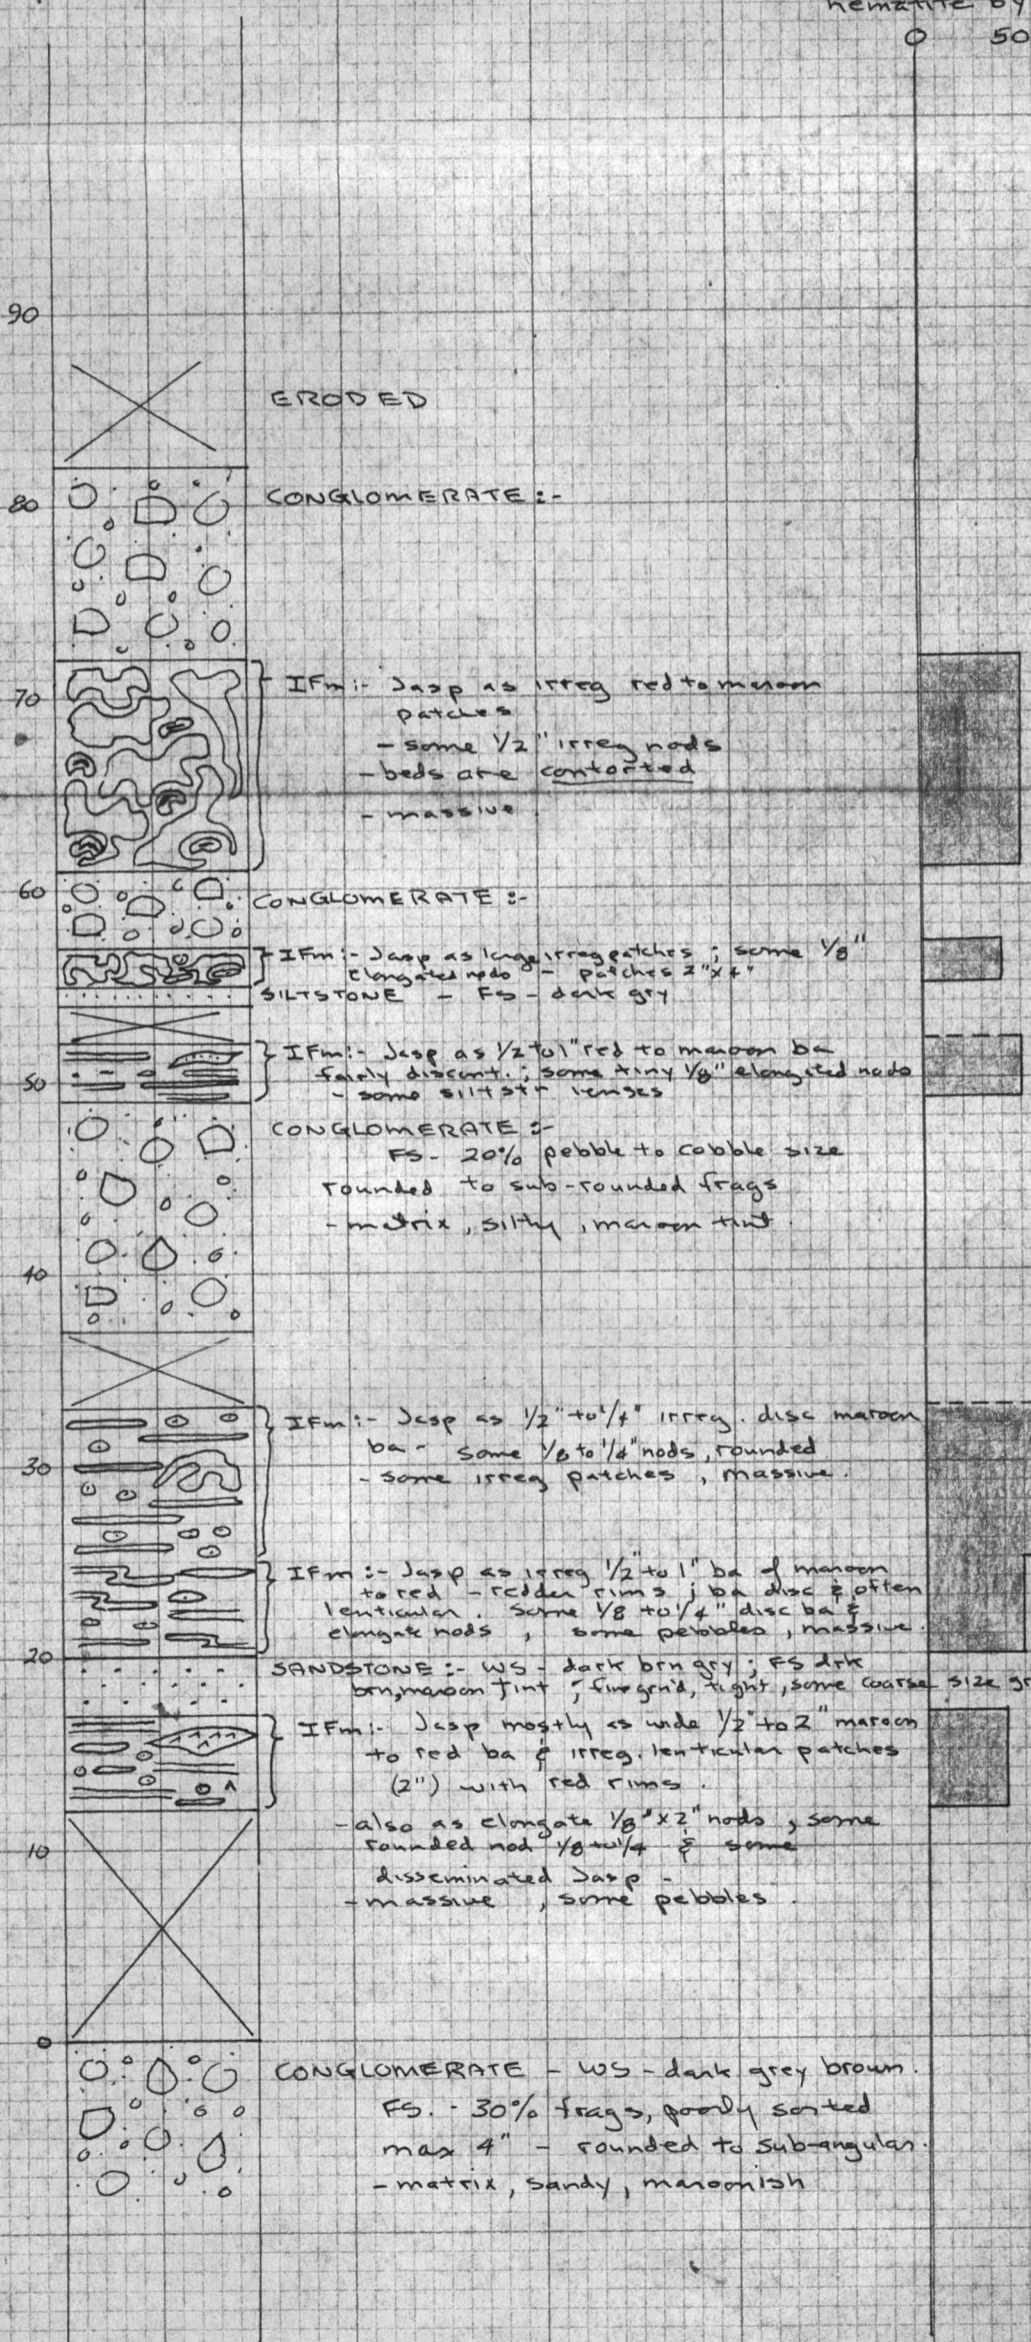 hematite by
0 50
90
ERODED
80
CONGLOMERATE :-
IFm :- Jasp as irreg red to maroon
70
patches
- some 1/2" irreg nods
- beds are contorted
- massive
60
CONGLOMERATE :-
IFm :- Jasp as large irreg patches ; some 1/8"
elongated nods - patches 2"x4"
SILTSTONE - FS - dark gry
IFm :- Jasp as 1/2 to 1" red to maroon ba
fairly discont. ; some tiny 1/8" elongated nods
50
- some siltstn lenses
CONGLOMERATE :-
FS - 20% pebble to cobble size
rounded to sub-rounded frags
- matrix, silty, maroon tint.
40
IFm :- Jasp as 1/2" to 1/4" irreg. disc maroon
ba - some 1/8 to 1/4" nods, rounded
30
- some irreg patches, massive.
IFm :- Jasp as irreg 1/2" to 1" ba of maroon
to red - redder rims ; ba disc & often
lenticular. Some 1/8 to 1/4" disc ba &
elongate nods, some pebbles, massive.
20
SANDSTONE :- WS - dark brn gry ; FS drk
brn, maroon tint ; fine grn'd, tight, some coarse size gr
IFm :- Jasp mostly as wide 1/2" to 2" maroon
to red ba & irreg. lenticular patches
(2") with red rims.
- also as elongate 1/8" x 2" nods, some
10
rounded nod 1/8 to 1/4 & some
disseminated Jasp -
- massive, some pebbles.
0
CONGLOMERATE - WS - dark grey brown.
FS. - 30% frags, poorly sorted
max 4" - rounded to sub-angular.
- matrix, sandy, maroonish